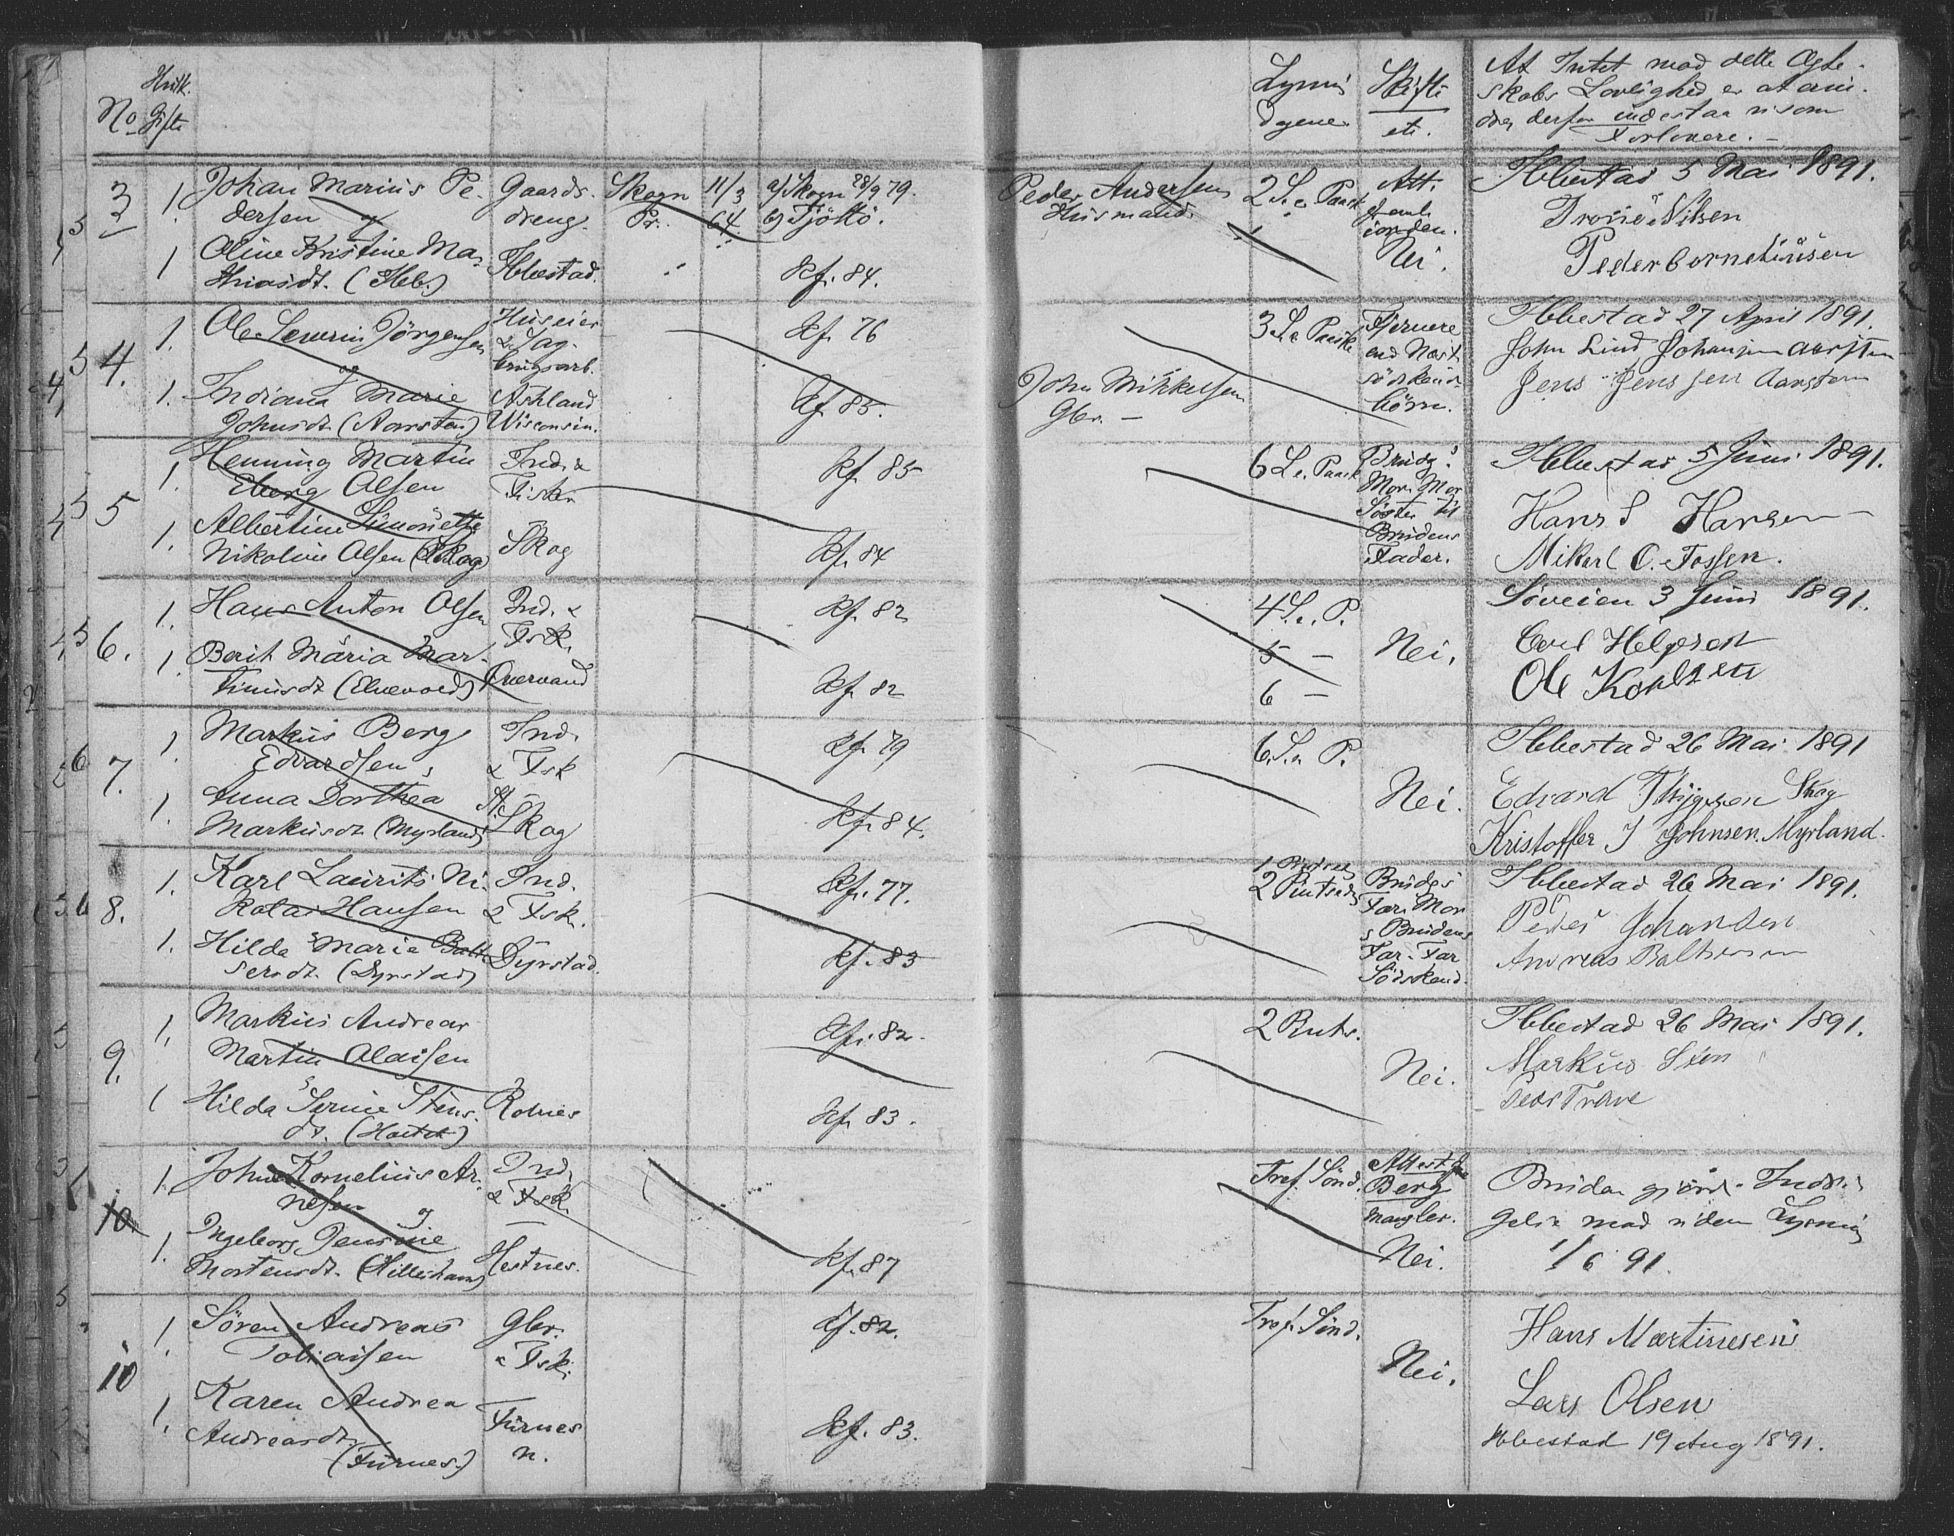 No
Hvilk.
Gifte
Lysnings
dagene
Skifte
etc.
At Intet mod dette Ægte-
skabs Lovlighed er at erin-
dre, derfor indestaa vi som
Forlovere.
3
1. Johan Marius Pe-
dersen og
Gaards-
dreng.
Skogn
Pr.
11/3
64
a/ Skogn 28/9 79.
b/ Tjöttö.
Peder Andersen
Husmand
2 S. e. Paask
Att.
Nei.
Ibbestad 5 Mai 1891.
Nilsen
1 Oline Kristine Ma-
thiasdt. (Ibb.)
Ibbestad.
kf. 84.
Peder Corneliussen
4.
1. Ole Severin Jörgensen
og
Huseier
& Sag-
brugsarb.
kf. 76
3 S. e. Paaske
Fjernere
end Næst-
södskende-
börn.
Ibbestad 27 April 1891.
John Lind Johansen Aarsten
Jens Jenssen Aarsten
1. Indiana Marie
Johnsdt. (Aarsten)
Ashland
Wisconsin.
kf. 85.
John Mikkelsen
Gbr. —
5
1. Henning Martin
Eberg Olsen
Ind. &
Fisker
kf. 85
6 S. e. Paask
Brudg.s
Mor. Mor
Söster til
Brudens
Fader.
Ibbestad 5 Juni 1891.
Hans S Hansen
Mikael C. Fossen.
1. Albertine Simonette
Nikoline Olsen (Skog)
Skog
kf. 84
6.
1. Hans Anton Olsen
Ind. &
Fsk.
kf. 82
4 S. e. P.
5 —
6 —
Nei.
Söveien 3 Juni 1891.
Ole
1. Berit Maria Mar-
tinusdt (Elvevold)
kf. 82
7.
1. Markus Berg
Edvardsen
Ind.
& Fsk
kf. 79
6. S. e. P.
Nei.
Ibbestad 26 Mai 1891
Edvard Thygesen Skog
Kristoffer J Johnsen. Myrland.
1. Anna Dorthea
Markusdt (Myrland)
Skog
kf. 84.
8.
1. Karl Laurits Ni-
kolai Hansen
Ind.
& Fsk.
kf. 77.
1 Pintsed.
2 Pintsed.
Brudg.s
Far. Mor
& Brudens
Far. Far
Södskend.
Ibbestad 26 Mai 1891.
Peder Johansen
Andreas Baltsersen
1. Hilda Marie Balt-
sersdt. (Dyrstad)
Dyrstad.
kf. 83
9.
1. Markus Andreas
Martin Olaisen
kf. 82.
2 Pints.
Nei.
Ibbestad 26 Mai 1891.
Markus Sten
1 Hilda Serine Stens-
dt.
Rolnes
kf. 83.
10.
1. Johan Kornelius Ar-
nesen og
Ind.
& Fsk.
Tref. Sönd.
Attest fra
Berg
mangler.
Nei.
Bruden gjörd. Ind-
uden Lysning
1/6 91.
1. Ingeborg Jensine
Mortensdt. (Hilleshavn)
Hestnes.
kf. 87
10
1. Sören Andreas
Tobiassen
Gbr.
& Fsk.
kf. 82.
Tref. Sönd.
Nei.
Hans Martinesen
Lars Olsen
Ibbestad 19 Aug 1891.
1. Karen Andrea
Andreasdt.
(Furnes.)
Furnes
n.
kf. 83.